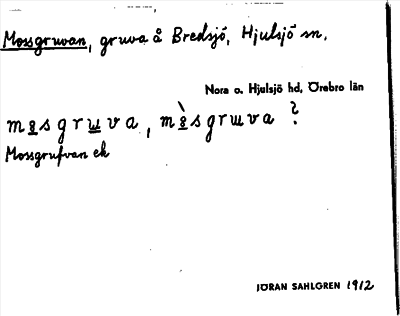 Mossgruvan, gruva å Bredsjö, Hjulsjö sn.
Nora o. Hjulsjö hd, Örebro län
mosgruva, mòsgruva ?
Mossgrufvan ek
JÖRAN SAHLGREN 1912